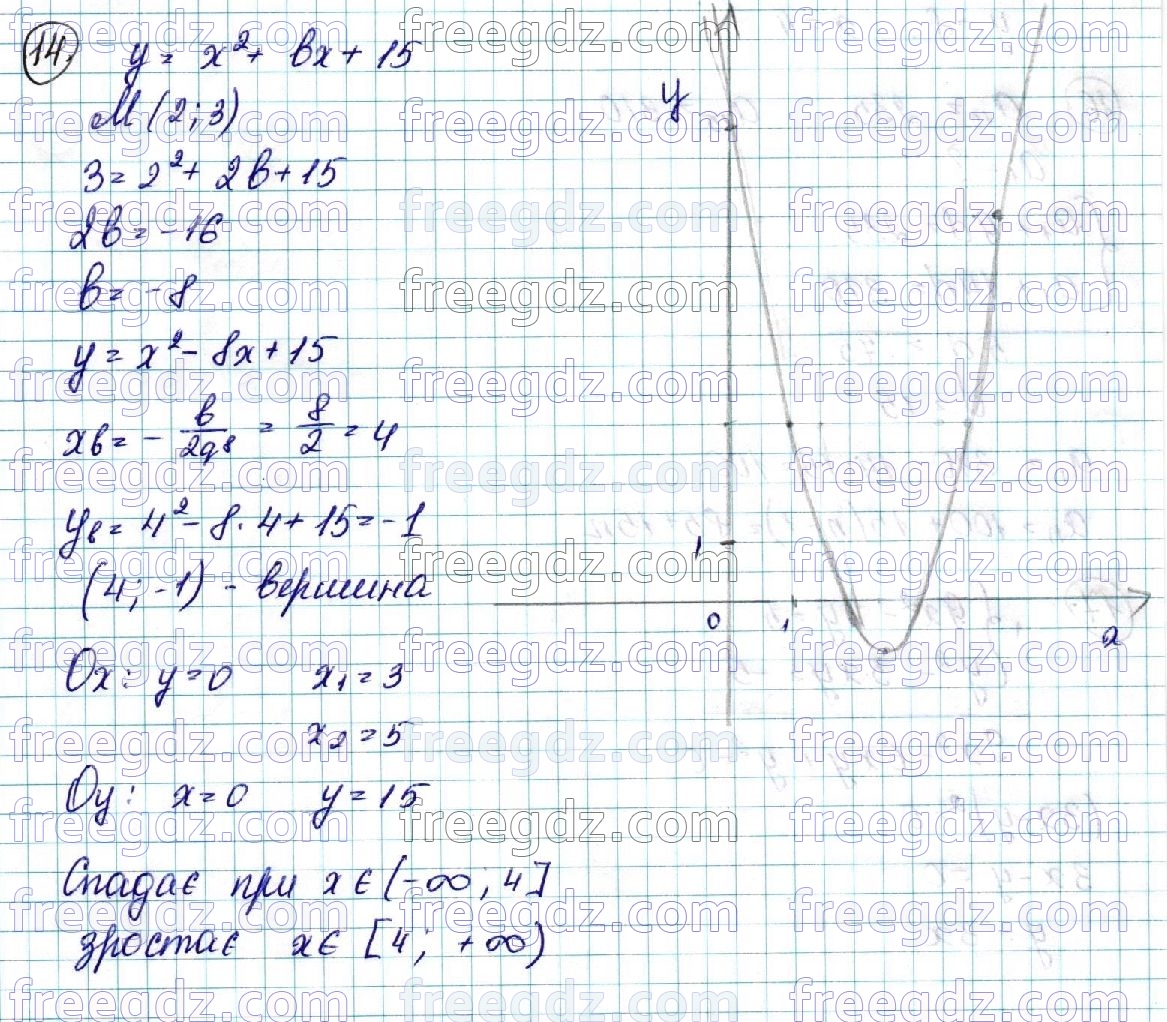 14. y = x² + bx + 15
M (2; 3)
3 = 2² + 2b + 15
2b = -16
b = -8
y = x² - 8x + 15
xв = - b/2a = 8/2 = 4
yв = 4² - 8 · 4 + 15 = -1
(4; -1) - вершина
Ox: y = 0 x₁ = 3
x₂ = 5
Oy: x = 0 y = 15
Спадає при x ∈ (-∞; 4]
зростає x ∈ [4; +∞)
y
1
0 1 x
freegdz.com freegdz.com freegdz.com
freegdz.com freegdz.com freegdz.com
freegdz.com freegdz.com freegdz.com
freegdz.com freegdz.com freegdz.com
freegdz.com freegdz.com freegdz.com
freegdz.com freegdz.com freegdz.com
freegdz.com freegdz.com freegdz.com
freegdz.com freegdz.com freegdz.com
freegdz.com freegdz.com freegdz.com
freegdz.com freegdz.com freegdz.com
freegdz.com freegdz.com freegdz.com
freegdz.com freegdz.com freegdz.com